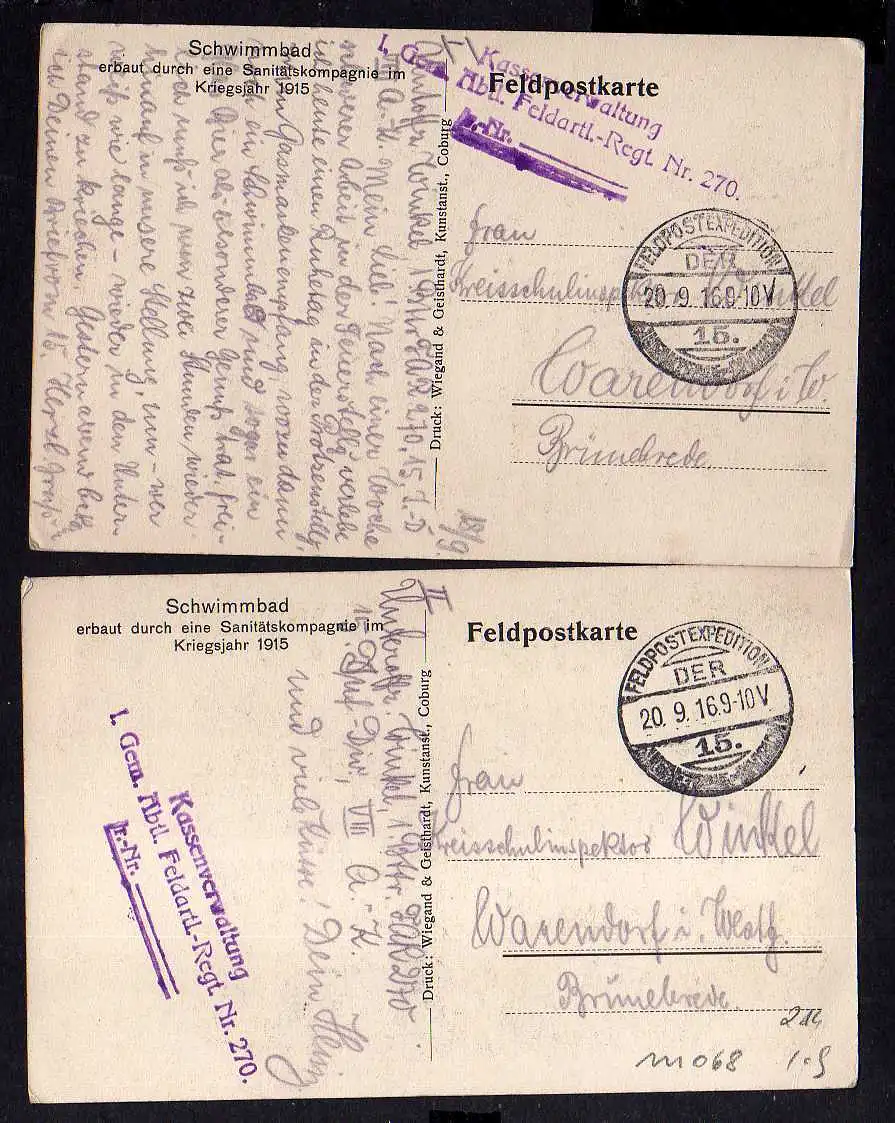 Schwimmbad
erbaut durch eine Sanitätskompagnie im
Kriegsjahr 1915
Feldpostkarte
Kassenverwaltung
I. Gem. Abtl. Feldartl.-Regt. Nr. 270.
Tr.-Nr.
FELDPOSTEXPEDITION
DER
20.9.16.9-10V
15.
Frau
Kreisschulinspektor Winkel
Warendorf i. W.
Brünebrede
Druck: Wiegand & Geisthardt, Kunstanst., Coburg
I
18/9.
Unteroffz. Winkel, 1. Bttr. FAR 270, 15. J.-D
VIII A.-K. Mein Lieb. Nach einer Woche
schwerer Arbeit in der Feuerstellg verlebe
ich heute einen Ruhetag in der Protzenstellg
Gasmaskenempfang, wozu dann
noch ein Schwimmbad und sogar ein
Bier als besonderer Genuß trat. Frei-
lich muß ich nun zwei Stunden wieder
hinauf in unsere Stellung, um – wer
weiß wie lange – wieder in den Unter-
stand zu kriechen. Gestern abend bekam
ich Deinen Brief vom 15. Herzl Gruß
Schwimmbad
erbaut durch eine Sanitätskompagnie im
Kriegsjahr 1915
Feldpostkarte
II
Unteroffz. Winkel, 1. Bttr. FAR 270
15. Inf.-Div., VIII A.-K.
und viele Küsse! Dein Heinz
Kassenverwaltung
I. Gem. Abtl. Feldartl.-Regt. Nr. 270.
Tr.-Nr.
Druck: Wiegand & Geisthardt, Kunstanst., Coburg
FELDPOSTEXPEDITION
DER
20.9.16.9-10V
15.
Frau
Kreisschulinspektor Winkel
Warendorf i. Westf.
Brünebrede
m068